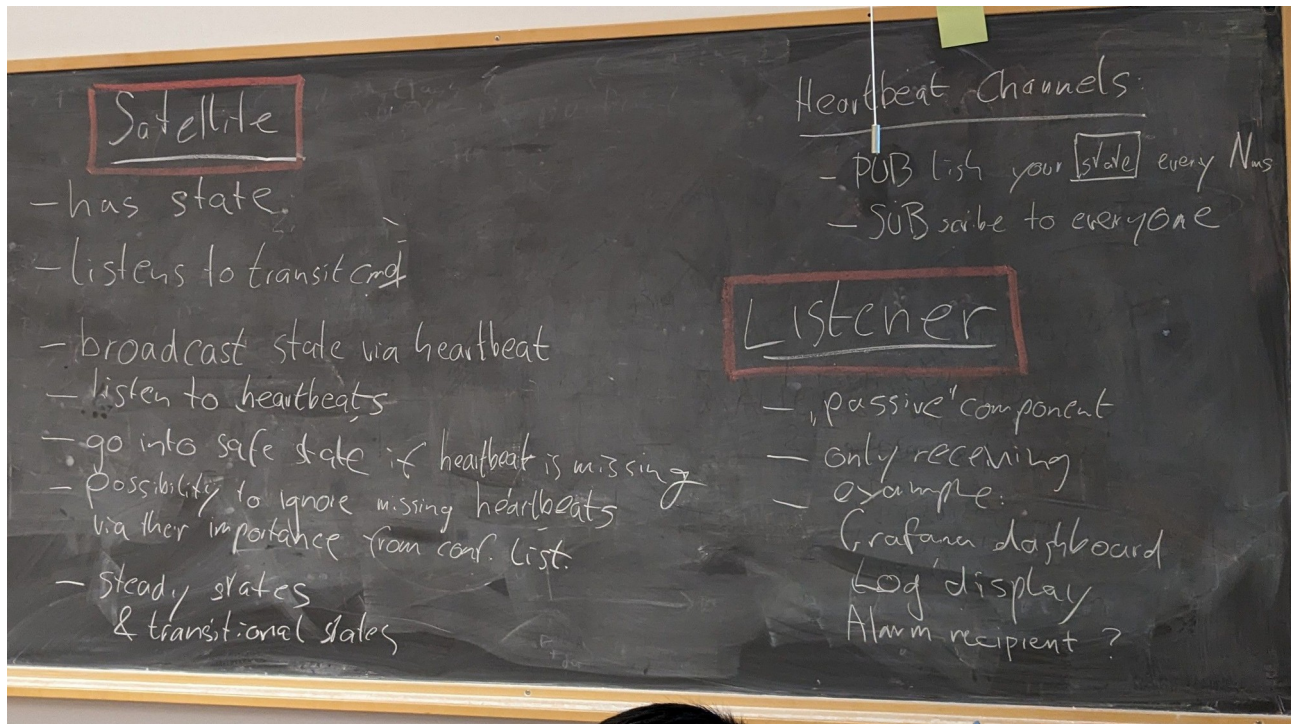 Satellite
- has state
- listens to transit cmd
- broadcast state via heartbeat
- listen to heartbeats
- go into safe state if heartbeat is missing
- possibility to ignore missing heartbeats
via their importance from conf. list.
- steady states
& transitional states
Heartbeat Channels:
- PUB lish your state every N ms
- SUB scribe to everyone
Listener
- „passive" component
- only receiving
- example:
Grafana dashboard
Log display
Alarm recipient ?